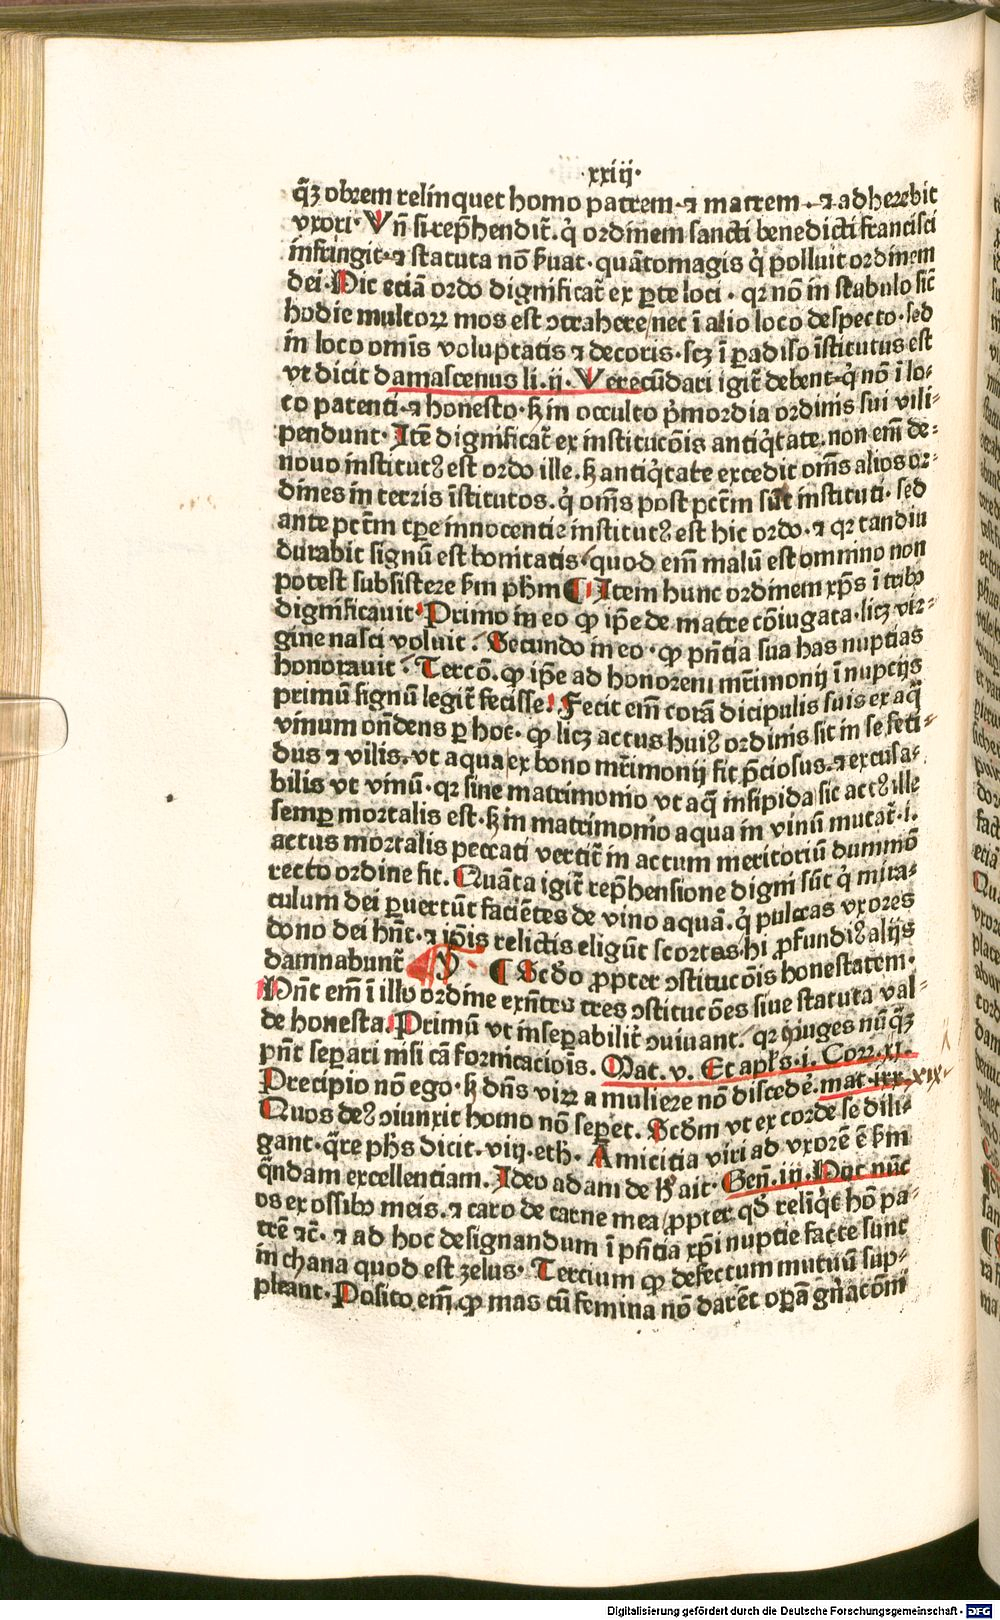 ·xxiij·
q̄ꝫ obrem relinquet homo patrem ⁊ matrem ·⁊ adherebit
vxori· Vn̄ si rep̄hendit̄· q̇ ordinem sancti benedicti francisci
infringit·⁊ statuta nō ẜuat· quātomagis q̇ polluit ordinem
dei· Hic eciā ordo dignificat̄ ex ꝑte loci · qꝛ nō in stabulo sic̄
hodie multoꝝ mos est ↄtrahere/nec ī alio loco despecto·sed
in loco omīs voluptatis ⁊ decoris·scꝫ ī ꝑadiso īstitutus est
vt dicit damascenus li.ij. Verecūdari igit̄ debent·q̇ nō ī lo⸗
co patenti·⁊ honesto·ẜꝫ in occulto p̄mordia ordinis sui vili⸗
pendunt· Itē dignificat̄ ex institucōis antiq̇tate.non em̄ de⸗
nouo institutꝰ est ordo ille.ẜꝫ antiq̇tate excedit om̄s alios or⸗
dines in terris īstitutos.q̇ om̄s post pctm̄ sūt instituti· sed
ante pctm̄ tꝑe innocentie institutꝰ est hic ordo·⁊ qꝛ tandiu
durabit signū est bonitatis/quod em̄ malū est omnino non
potest subsistere ẜm phm ¶ Item hunc ordinem xp̄s ī tribꝰ
dignificauit· Primo in eo ꝙ ip̄e de matre cōiugata·licꝫ vir⸗
gine nasci voluit · Secundo in eo·ꝙ pn̄cia sua has nuptias
honorauit · Tercō.ꝙ ip̄e ad honorem mr̄imonij ī nuptijs
primū signū legit̄ fecisse· Fecit em̄ corā dicipulis suis ex aq̄
vinum on̄dens ꝑ hoc·ꝙ licꝫ actus huiꝰ ordinis sit in se feti⸗
dus ⁊ vilis.vt aqua ex bono mr̄imonij fit p̄ciosus.⁊ excusa⸗
bilis vt vinū·qꝛ sine matrimonio vt aq̄ insipida sic actꝰ ille
semꝑ mortalis est·ẜꝫ in matrimonio aqua in vinū mutat̄·i·
actus mortalis peccati vertit̄ in actum meritoriū dummō
recto ordine fit. Quāta igit̄ rep̄hensione digni sūt q̇ mira⸗
culum dei ꝑuertūt faciētes de vino aquā.q̇ pulcras vxores
dono dei hn̄t·⁊ ip̄is relictis eligūt scortas·hi ꝓfundiꝰ alijs
damnabunt̄ ¶ Scd̄o ꝓpter ↄstitucōis honestatem·
Hn̄t em̄ ī illo ordine exn̄tes tres ↄstitucōes siue statuta val⸗
de honesta. Primū vt inseꝑabilit̄ ↄuiuant. qꝛ ↄiuges nūq̄ꝫ
pn̄t seꝑari nisi cā fornicaciois. Mat.v. Et apl's.i.Corꝝ.xi.
Precipio nō ego·ẜꝫ dn̄s viꝝ a muliere nō discedē.mat.ixx.xix
Quos deꝰ ↄiunxit homo nō seꝑet. Scd̄m vt ex corde se dili⸗
gant·q̄re phs dicit.viij.eth. Amicitia viri ad vxorē ē ẜm
q̄ndam excellentiam. Ideo adam de ẜ ait· Gen̄.iij. Hoc nūc
os ex ossibꝰ meis.⁊ caro de carne mea/ꝓpter qd̄ reliq̇t hō pa⸗
trē ⁊c̄· ⁊ ad hoc designandum ī pn̄tia xp̄i nuptie facte sunt
in chana quod est zelus· Tercium ꝙ defectum mutuū sup⸗
pleant· Posito em̄ ꝙ mas cū femina nō darēt oꝑā gn̄acōni
Digitalisierung gefördert durch die Deutsche Forschungsgemeinschaft - DFG